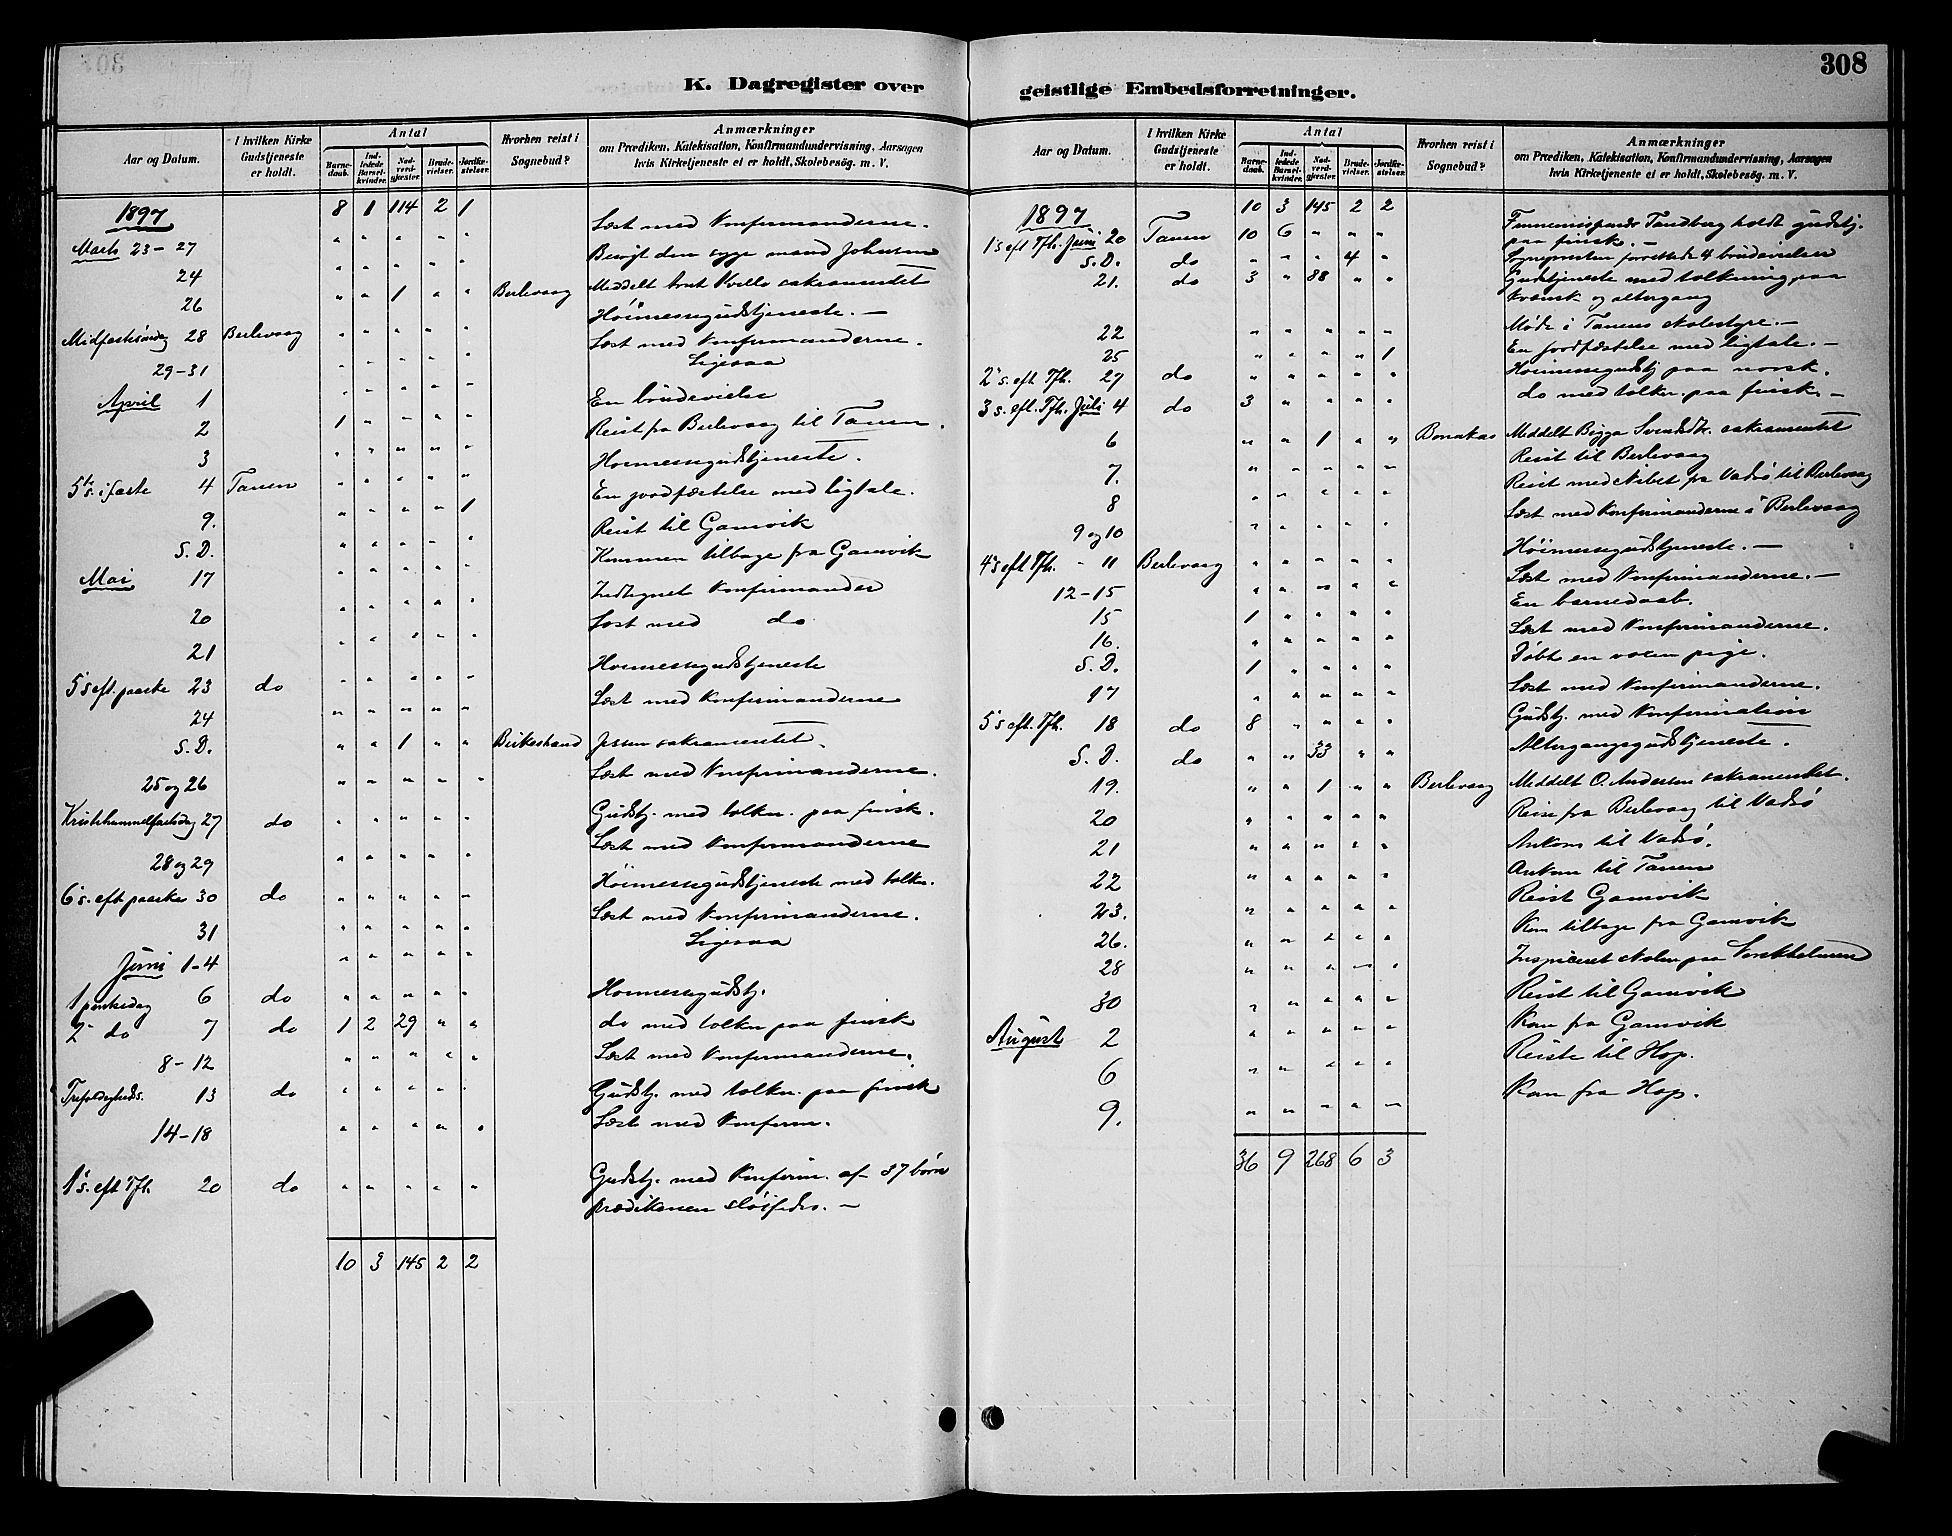 308
K. Dagregister over
geistlige Embedsforretninger.
Aar og Datum.
I hvilken Kirke Gudstjeneste er holdt.
Antal
Barne-daab.
Ind-ledede Barsel-kvinder.
Nad-verd-gjester.
Brude-vielser.
Jordfæ-stelser.
Hvorhen reist i Sognebud?
Anmærkninger
om Prædiken, Katekisation, Konfirmandundervisning, Aarsagen
hvis Kirketjeneste ei er holdt, Skolebesög. m. V.
1897 8 1 114 2 1
Marts 23-27 " " " " " Læst med Konfirmanderne.
24 " " " " " Besøgt den syge mand Johansen
26 " " 1 " " Berlevaag Meddelt sakramentet
Midfastesøndag 28 Berlevaag " " " " " Høimessegudstjeneste. —
29-31 " " " " " Læst med Konfirmanderne.
April 1 " " " " " Ligesaa
2 1 " " " " En brudevielse
3 " " " " " Reist fra Berlevaag til Tanen.
5te s. i faste 4 Tanen " " " " " Høimessegudstjeneste.
9. " " " " 1 En jordfæstelse med ligtale.
S. D. " " " " " Reist til Gamvik
Mai 17 " " " " " Kommen tilbage fra Gamvik
20 " " " " " Indtegnet Konfirmander
21 " " " " " Læst med do
5 s eft. paaske 23 do " " " " " Høimessegudstjeneste
24 " " " " " Læst med Konfirmanderne
S. D. " " 1 " " Birkestrand Jessen sakramentet.
25 og 26 " " " " " Læst med Konfirmanderne.
Kristihimmelfartsdag 27 do " " " " " Gudstj. med tolkn. paa finsk.
28 og 29 " " " " " Læst med Konfirmanderne
6 s. eft paaske 30 do " " " " " Høimessegudstjeneste med tolkn.
31 " " " " " Læst med Konfirmanderne.
Juni 1-4 " " " " " Ligesaa
1 pinsedag 6 do " " " " " Høimessegudstj.
2 do 7 do 1 2 29 " " do med tolkn paa finsk
8-12 " " " " " Læst med Konfirmanderne.
Trefoldigheds. 13 do " " " " " Gudstj. med tolkn. paa finsk
14-18 " " " " " Læst med Konfirm.
1 s. eft Trfh. 20 do " " " " " Gudstj. med Konfirm. af 37 børn
prædikenen sløifedes. —
10 3 145 2 2
Aar og Datum.
I hvilken Kirke Gudstjeneste er holdt.
Antal
Barne-daab.
Ind-ledede Barsel-kvinder.
Nad-verd-gjester.
Brude-vielser.
Jordfæ-stelser.
Hvorhen reist i Sognebud?
Anmærkninger
om Prædiken, Katekisation, Konfirmandundervisning, Aarsagen
hvis Kirketjeneste ei er holdt, Skolebesög. m. V.
1897 10 3 145 2 2
1 s eft Trfh. Juni 20 Tanen 10 6 " " " Finnemissionær Tandberg holdt gudstj.
paa finsk. —
S. D. do " " " 4 " Sognepresten forrettede 4 brudevielser
21. do 3 " 88 " " Gudstjeneste med tolkning paa
kvænsk og altergang
22 " " " " " Møde i Tanens skolestyre. —
25 " " " " 1 En jordfæstelse med ligtale. —
2 s. eft Trfh. 27 do " " " " " Høimessegudstj paa norsk.
3 s. eft. Trfh. Juli 4 do 3 " " " " do med tolkn. paa finsk. —
6 " " 1 " " Bonakas Meddelt Bigga Svendsdtr. sakramentet
7. " " " " " Reist til Berlevaag
8 " " " " " Reist med skibet fra Vadsø til Berlevaag
9 og 10 " " " " " Læst med Konfirmanderne i Berlevaag
4 s eft Trfh. " 11 Berlevaag " " " " " Høimessegudstjeneste. —
12-15 " " " " " Læst med Konfirmanderne. —
15 1 " " " " En barnedaab.
16. " " " " " Læst med Konfirmanderne.
S. D. 1 " " " " Døbt en voxen pige.
17 " " " " " Læst med Konfirmanderne.
5 s eft. Trfh. 18 do 8 " " " " Gudstj. med Konfirmation
S. D. do " " 33 " " Altergangsgudstjeneste.
19. " " 1 " " Berlevaag Meddelt O. Andersen sakramentet.
20 " " " " " Reise fra Berlevaag til Vadsø
21 " " " " " Ankom til Vadsø.
22 " " " " " Ankom til Tanen
23. " " " " " Reist Gamvik
26. " " " " " Kom tilbage fra Gamvik
28 " " " " " Inspiceret skolen paa
30 " " " " " Reist til Gamvik
August 2 " " " " " Kom fra Gamvik
6 " " " " " Reiste til Hop.
9. " " " " " Kom fra Hop.
36 9 268 6 3